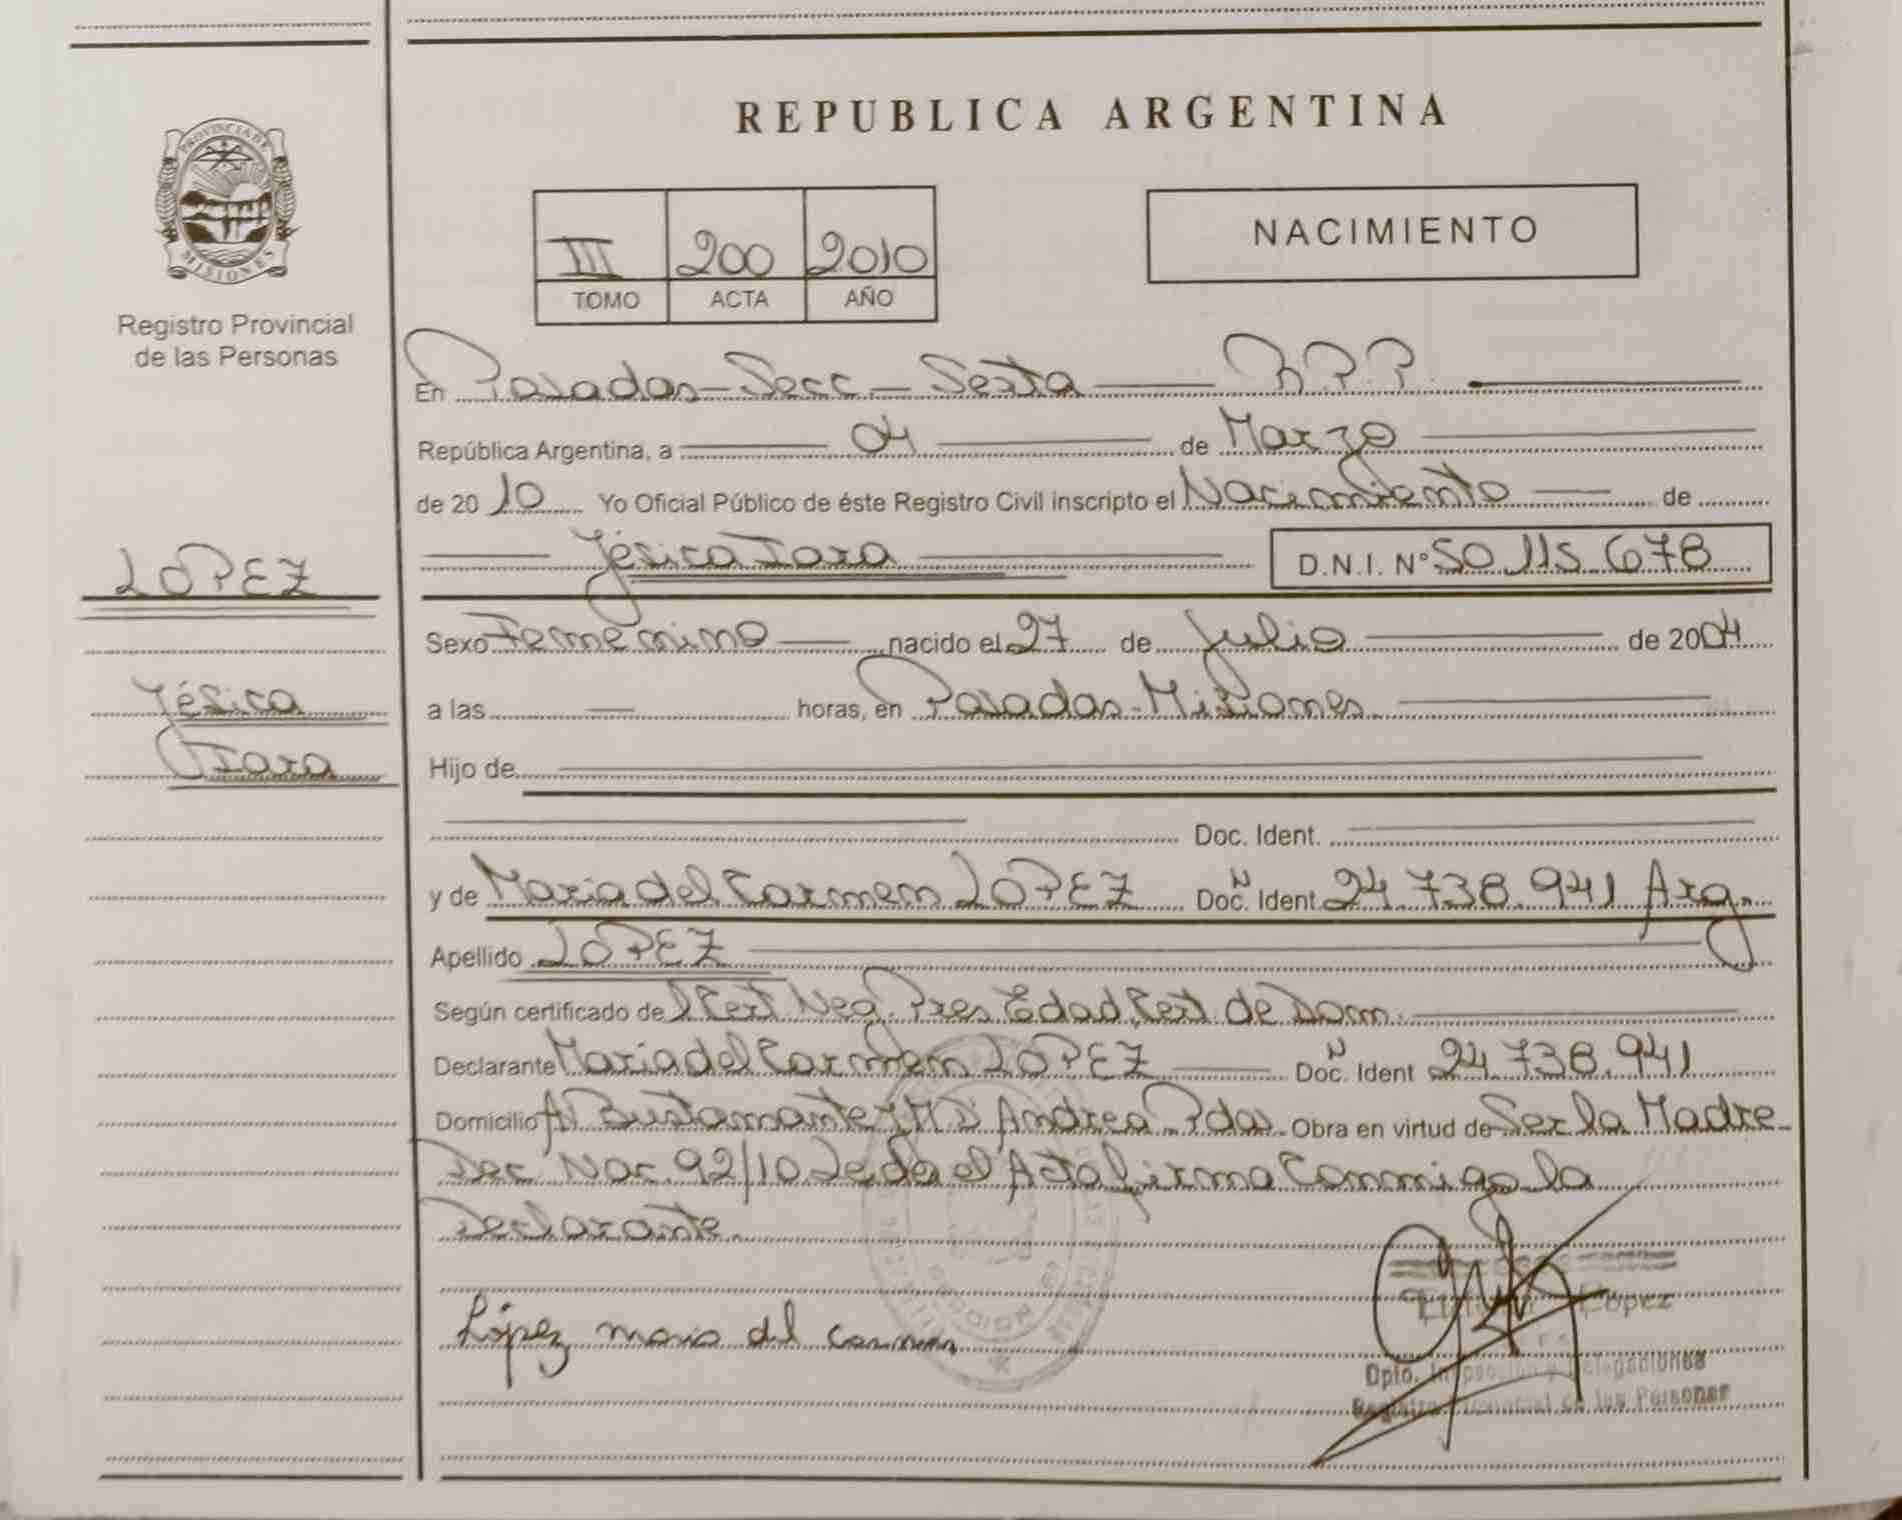 REPUBLICA ARGENTINA
PROVINCIA DE
MISIONES
Registro Provincial
de las Personas
III 200 2010
TOMO ACTA AÑO
NACIMIENTO
En Posadas - Secc - Sexta R.P.P.
República Argentina, a 04 de Marzo
de 2010 Yo Oficial Público de éste Registro Civil inscripto el Nacimiento de
Jésica Iara D.N.I. Nº 50 115 678
LOPEZ
Jésica
Iara
Sexo Femenino nacido el 27 de Julio de 2004
a las horas, en Posadas - Misiones
Hijo de
Doc. Ident.
y de Maria del Carmen LOPEZ Doc. Ident 24.738.941 Arg.
Apellido LOPEZ
Según certificado de Cert Neg. Pres Edad, Cert de Dom.
Declarante Maria del Carmen LOPEZ Doc. Ident 24.738.941
Domicilio Av Bustamante y Andrea Pdas. Obra en virtud de Ser la Madre -
92/10 Leda el Acta firma Conmigo la
Declarante.
López maria del carmen
Lopez
Dpto. Inspección y Delegaciones
Registro Provincial de las Personas